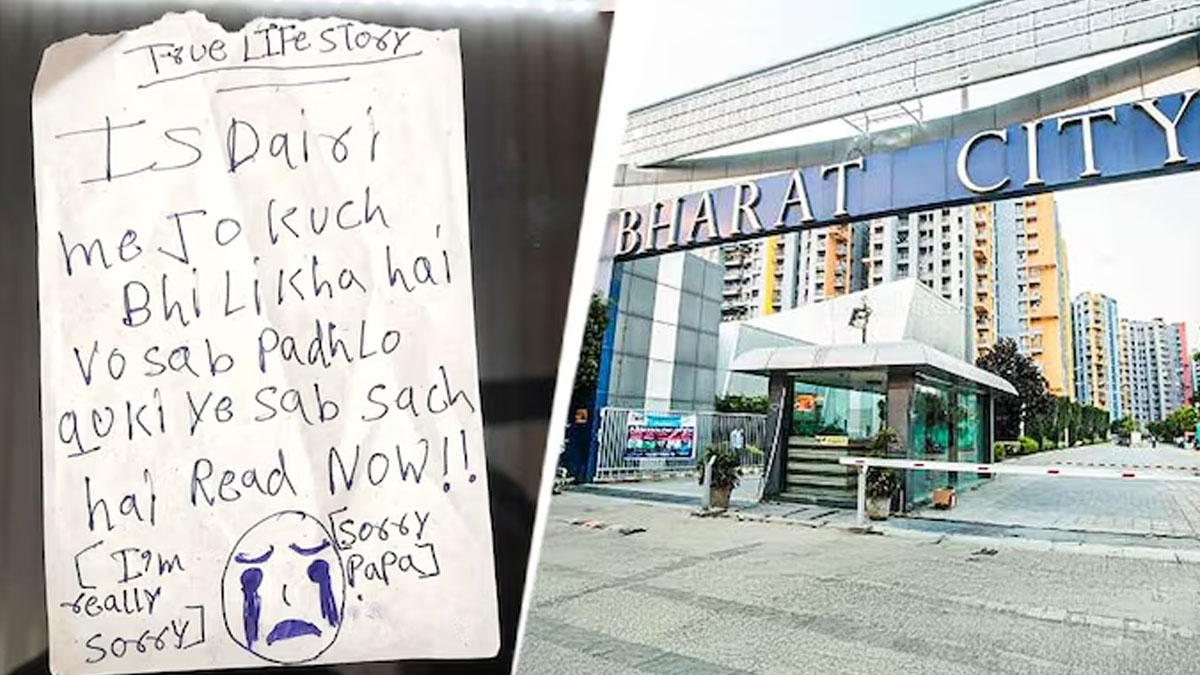 True LIFe story
IS Dairi
me Jo kuch
Bhi Likha hai
vo sab Padhlo
quki ye sab sach
hai Read NOW!!
[I'm
really
sorry]
[sorry
PaPa]
BHARAT CITY